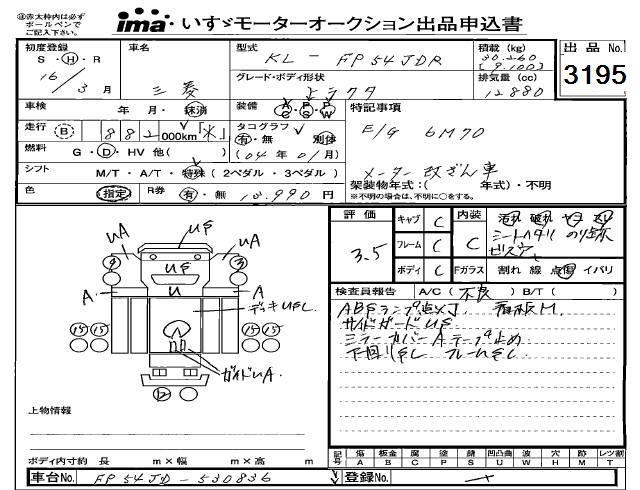 ㊟赤太枠内は必ず
ボールペンで
ご記入下さい。
ima いすゞモーターオークション出品申込書
初度登録
S・H・R
16年 3月
車名
三菱
型式
KL - FP54JDR
積載(kg)
30.260
[9.100]
グレード・ボディ形状
トラクタ
排気量(cc)
12880
出品No.
3195
車検
年・月・抹消
装備
A/C P/S P/W
特記事項
走行
(B) 882,000km「*」
タコグラフ
有・無 別体
(04年01月)
E/G 6M70
燃料
G・D・HV 他( )
メーター改ざん車
シフト
M/T・A/T・特殊(2ペダル・3ペダル)
架装物年式:( 年式)・不明
※不明の場合は、不明に○をする。
色
(指定)
R券
有・無 10,990円
評価
3.5
キャブ C
フレーム C
ボディ C
内装 C
シートヘタリ
ビスアナ
Fガラス
割れ 線 点傷 イバリ
検査員報告
A/C(不良) B/T( )
ABSランプ点メ 看板M
サイドガードUS
ミラーカバーAテープ止め
下回りSL フレームSL
UA
US
UA
US
U
A
A
デッキUSL
ガイドUA
上物情報
ボディ内寸約 長 m×幅 m×高 m
記号
傷 板金 腐 塗 錆 凹凸曲 波 穴 跡 レツ割
A B C P S U W H M T
車台No.
FP54JD-530836
登録No.